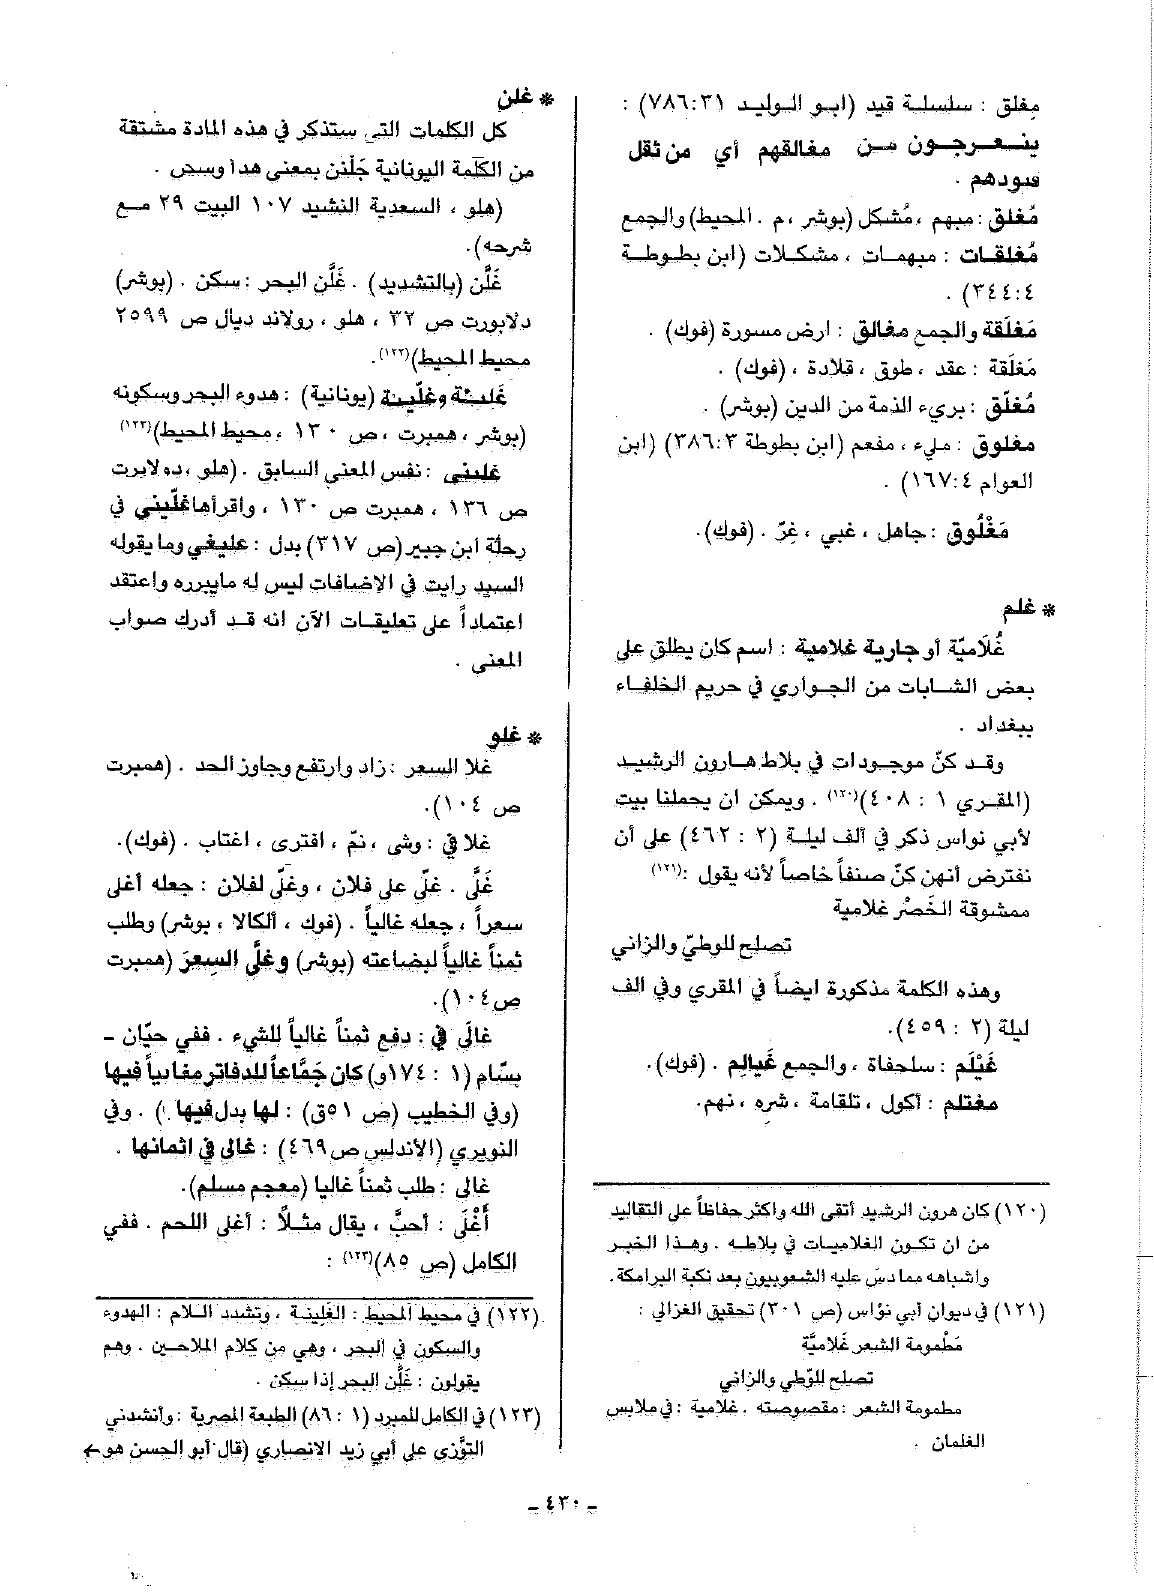 مغلق : سلسلة قيد (ابو الوليد ٧٨٦:٣١) :
ينعرجون من مغالقهم أي من ثقل
قيودهم .
مُغلق : مبهم ، مُشكل (بوشر ، م . المحيط) والجمع
مُغلقات : مبهمات ، مشكلات (ابن بطوطة
٣٤٤:٤) .
مَغلَقة والجمع مغالق : ارض مسورة (فوك) .
مَغلَقة : عقد ، طوق ، قلادة ، (فوك) .
مُغلّق : بريء الذمة من الدين (بوشر) .
مغلوق : مليء ، مفعم (ابن بطوطة ٣٨٦:٣) (ابن
العوام ١٦٧:٤) .
مَغْلُوق : جاهل ، غبي ، غِرّ . (فوك).
* غلم
غُلَاميّة أو جارية غلامية : اسم كان يطلق على
بعض الشابات من الجواري في حريم الخلفاء
ببغداد .
وقد كنّ موجودات في بلاط هارون الرشيد
(المقري ١ : ٤٠٨)(١٢٠) . ويمكن ان يحملنا بيت
لأبي نواس ذكر في ألف ليلة (٢ : ٤٦٢) على أن
نفترض أنهن كنّ صنفاً خاصاً لأنه يقول :(١٢١)
ممشوقة الخَصْر غلامية
تصلح للوطيّ والزاني
وهذه الكلمة مذكورة ايضاً في المقري وفي الف
ليلة (٢ : ٤٥٩).
غَيْلَم : سلحفاة ، والجمع غَيالِم . (فوك).
مغتلم : أكول ، تلقامة ، شره ، نهم.
(١٢٠) كان هرون الرشيد أتقى الله واكثر حفاظاً على التقاليد
من ان تكون الغلاميات في بلاطه . وهذا الخبر
واشباهه مما دسّ عليه الشعوبيون بعد نكبة البرامكة.
(١٢١) في ديوان أبي نؤاس (ص ٣٠١) تحقيق الغزالي :
مَطمومة الشعر غَلاميَّة
تصلح للوّطي والزاني
مطمومة الشعر : مقصوصته . غلامية : في ملابس
الغلمان .
* غلن
كل الكلمات التي ستذكر في هذه المادة مشتقة
من الكلمة اليونانية جَلَنن بمعنى هدأ وسجن .
(هلو ، السعدية النشيد ١٠٧ البيت ٢٩ مع
شرحه).
غَلَّن (بالتشديد) . غَلَّن البحر : سكن . (بوشر)
دلابورت ص ٣٢ ، هلو ، رولاند ديال ص ٢٥٩٩
محيط المحيط)(١٢٢).
غَلِينَة وغلّينة (يونانية) : هدوء البحر وسكونه
(بوشر ، همبرت ، ص ١٣٠ ، محيط المحيط)(١٢٢)
غليني : نفس المعنى السابق . (هلو ، ده لابرت
ص ١٣٦ ، همبرت ص ١٣٠ ، واقرأها غلّيني في
رحلة ابن جبير (ص ٣١٧) بدل : عليغي وما يقوله
السيد رايت في الاضافات ليس له مايبرره واعتقد
اعتماداً على تعليقات الآن انه قد أدرك صواب
المعنى .
* غلو
غلا السعر : زاد وارتفع وجاوز الحد . (همبرت
ص ١٠٤).
غلا في : وشى ، نمّ ، افترى ، اغتاب . (فوك).
غَلَّى . غلّى على فلان ، وغلّى لفلان : جعله أغلى
سعراً ، جعله غالياً . (فوك ، ألكالا ، بوشر) وطلب
ثمناً غالياً لبضاعته (بوشر) وغلَّى السعرَ (همبرت
ص١٠٤).
غالَى في : دفع ثمناً غالياً للشيء . ففي حيّان -
بسّام (١ : ١٧٤و) كان جَمَّاعاً للدفاتر مغالياً فيها
(وفي الخطيب (ص ٥١ق) : لها بدل فيها) . وفي
النويري (الأندلس ص ٤٦٩) : غالى في اثمانها .
غالى : طلب ثمناً غاليا (معجم مسلم).
أَغْلَى : أحبَّ ، يقال مثلاً : أغلى اللحم . ففي
الكامل (ص ٨٥)(١٢٣) :
(١٢٢) في محيط المحيط : الغلِينة ، وتشدد اللام : الهدوء
والسكون في البحر ، وهي من كلام الملاحين . وهم
يقولون : غلَّن البحر إذا سكن .
(١٢٣) في الكامل للمبرد (١ : ٨٦) الطبعة المصرية : وأنشدني
التوّزي على أبي زيد الانصاري (قال أبو الحسن هو ←
ـ ٤٣٠ ـ